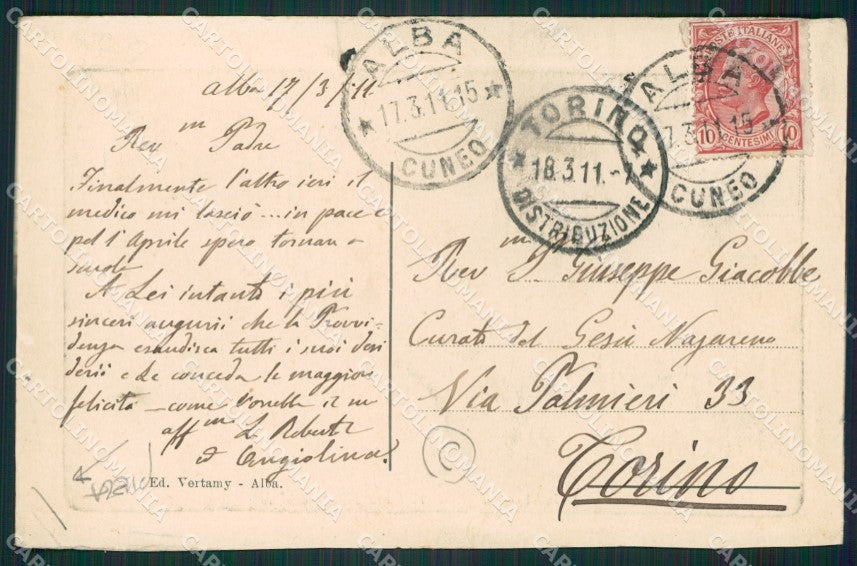 ALBA
17.3.11.15
CUNEO
TORINO
18.3.11.-7
DISTRIBUZIONE
ALBA
17.3.11.15
CUNEO
POSTE ITALIANE
10 CENTESIMI 10
Alba 17/3/11
Rev mo Padre
Finalmente l'altro ieri il
medico mi lasciò ... in pace e
pel 1° Aprile spero tornar a
scuola
A Lei intanto i più
sinceri augurii che la Provvi
denza esaudisca tutti i suoi desi
derii e Le conceda le maggiori
felicità — come vorrebbe il suo
aff mo
Angiolina
Rev mo S. Giuseppe Giacobbe
Curato del Gesù Nazareno
Via Palmieri 33
Torino
C
Ed. Vertamy - Alba.
CARTOLINOMANIA